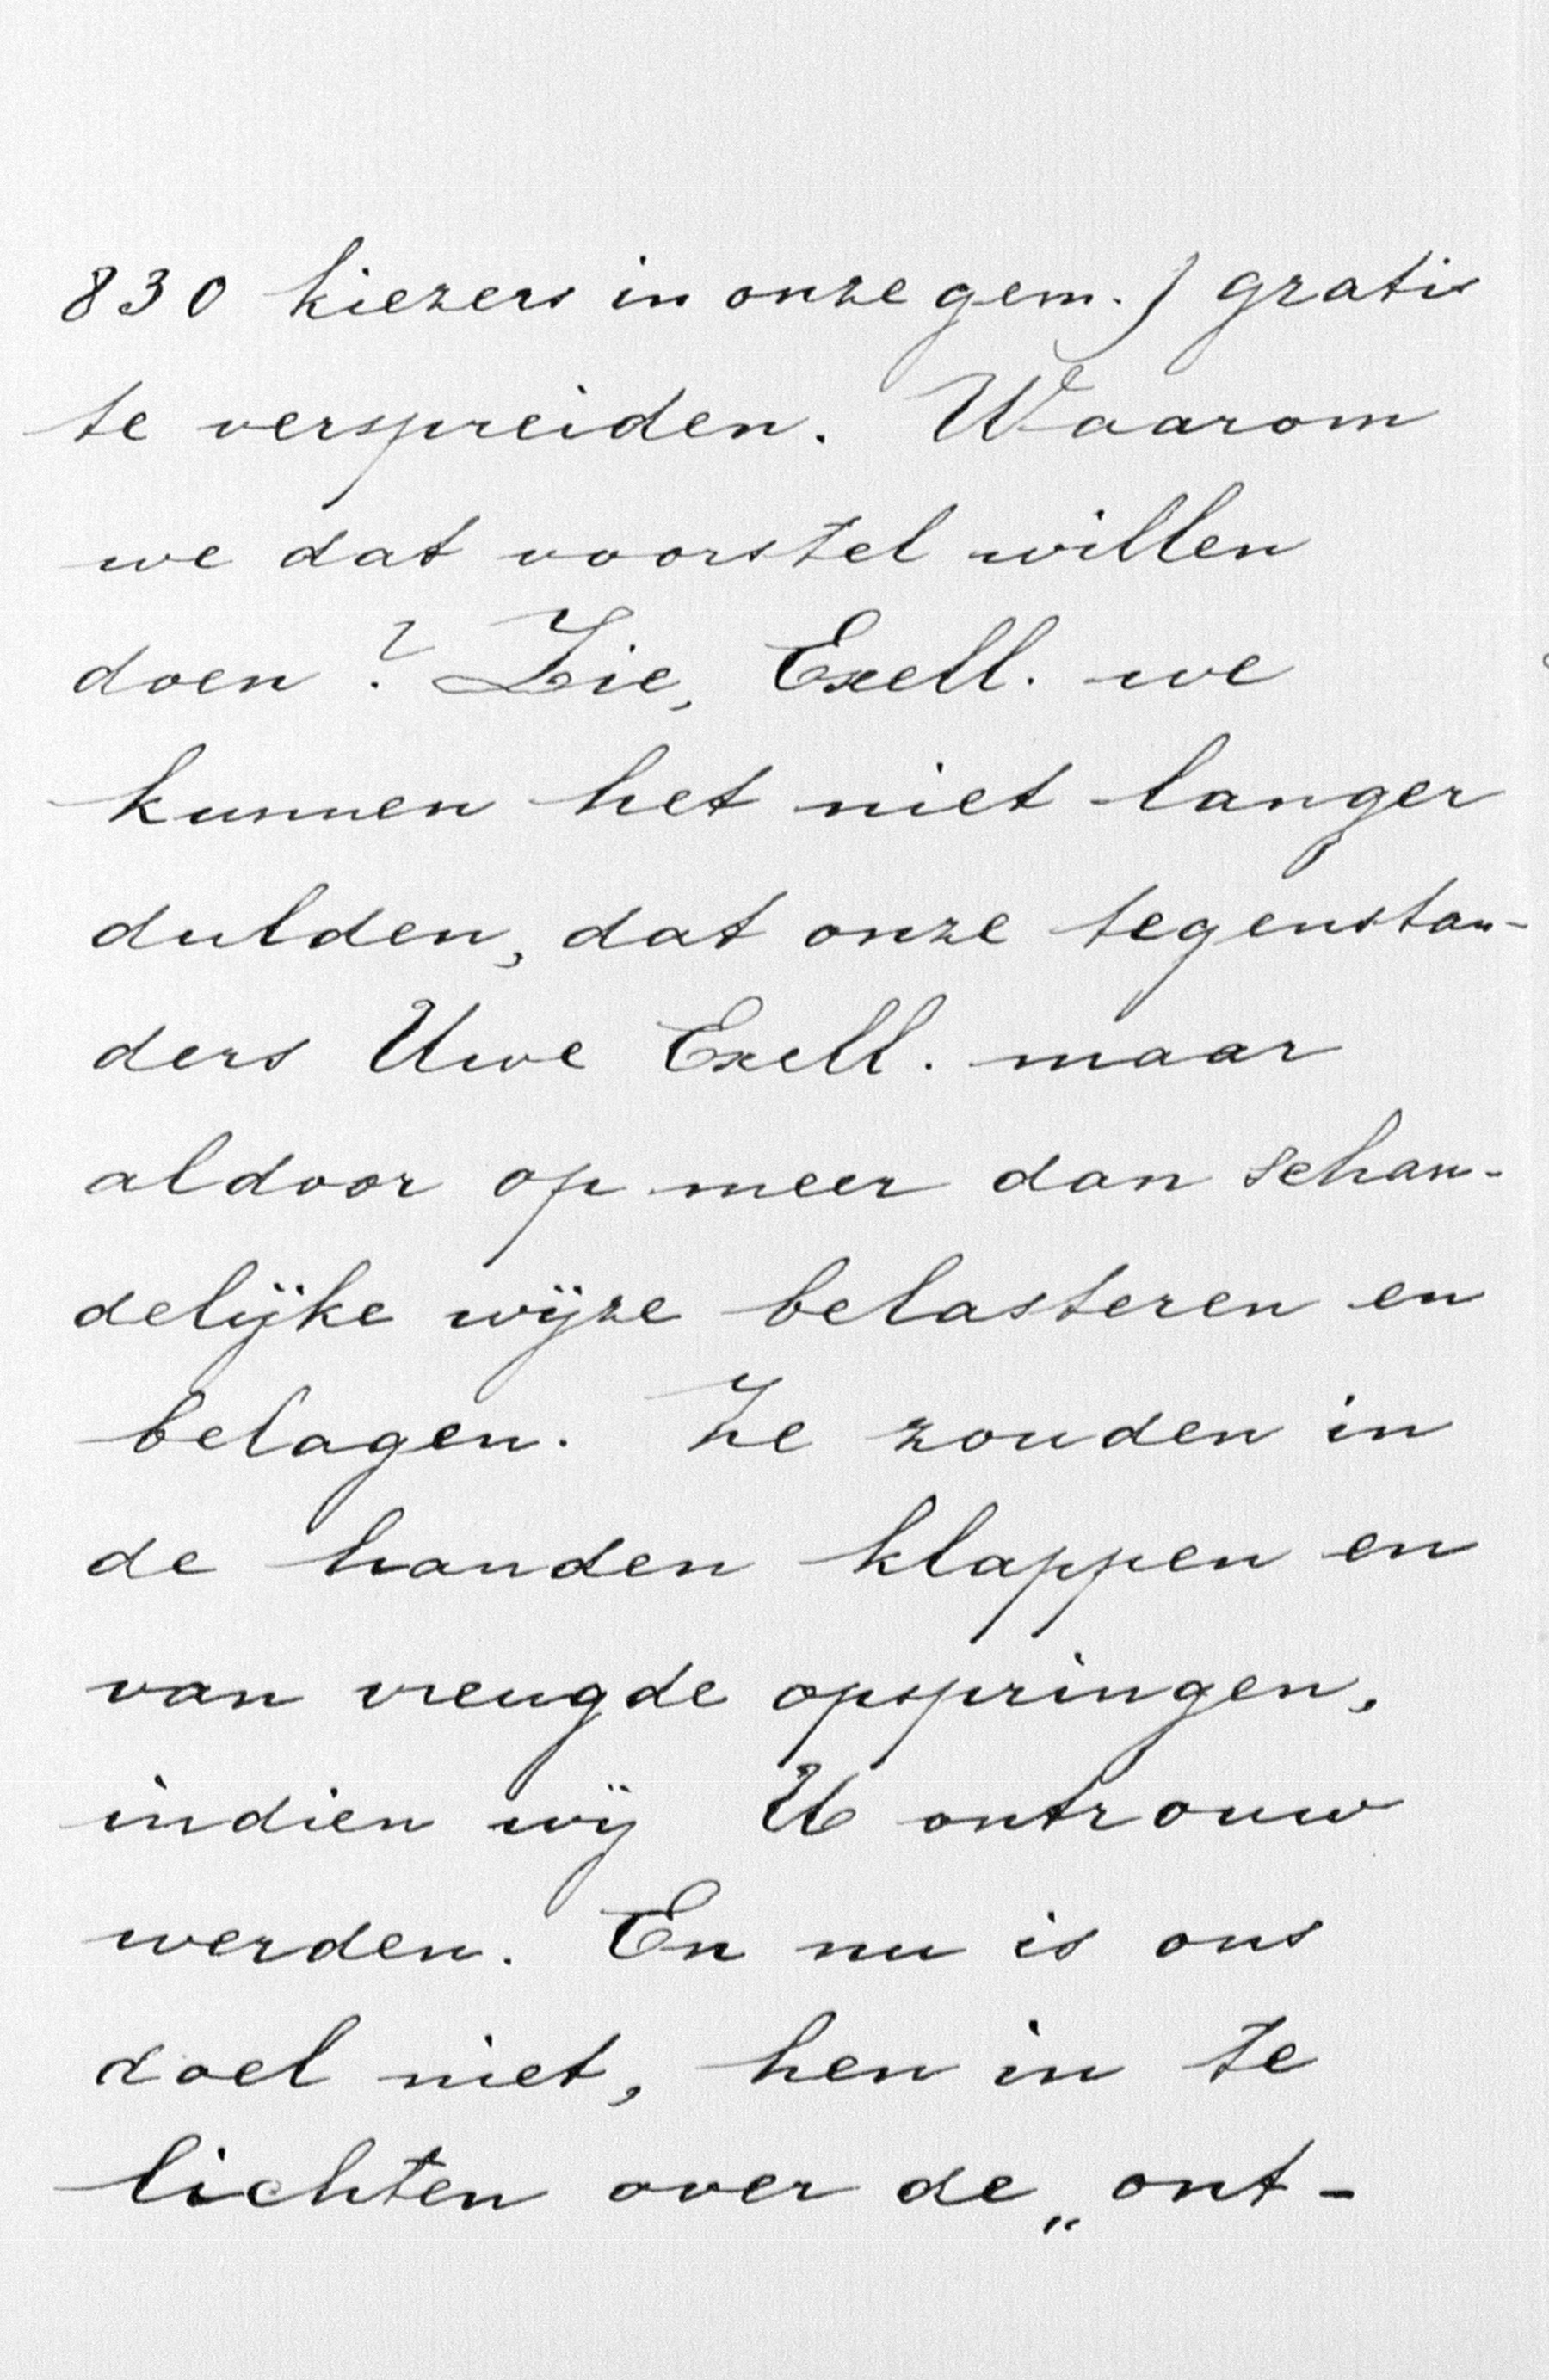 830 kiezers in onze gem.) gratis
te verspreiden. Waarom
we dat voorstel willen
doen? Zie, Exell. we
kunnen het niet langer
dulden, dat onze tegenstan-
ders Uwe Exell. maar
aldoor op meer dan schan-
delijke wijze belasteren en
belagen. Ze zouden in
de handen klappen en
van vreugde opspringen,
indien wij U ontrouw
werden. En nu is ons
doel niet, hen in te
lichten over de „ont-